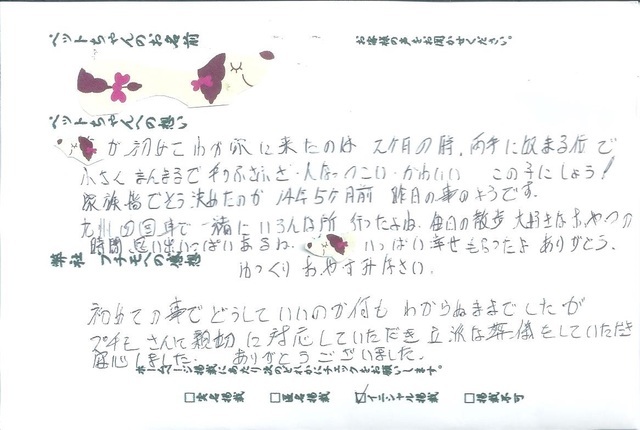 ペットちゃんのお名前
お客様の声をお聞かせください。
ペットちゃんへの想い
が初めてわが家に来たのは 2ケ月の時、両手に収まる位で
小さく まんまるで 毛がふさふさ・人なつっこい・かわいい この子にしよう!
家族皆でそう決めたのが 14年5ケ月前 昨日の事のようです。
九州 四国 車で一緒に いろんな所 行ったよね。毎日の散歩 大好きなおやつの
時間 思い出いっぱいあるね。 いっぱい幸せもらったよ ありがとう。
ゆっくり おやすみなさい。
弊社 プチモへの感想
初めての事で どうしていいのか何も わからぬままでしたが
プチモさんにて親切に対応していただき 立派な葬儀をしていただき
安心しました。 ありがとうございました。
ホームページ掲載にあたり次のどれかにチェックをお願いします。
□実名掲載 □匿名掲載 ☑イニシャル掲載 □掲載不可